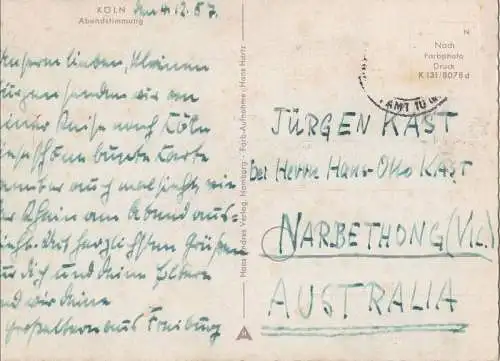 KÖLN
Abendstimmung
den 4.12.57.
Unserm lieben, kleinen
Jürgen senden wir von
einer Reise nach Köln
diese schöne bunte Karte
damit er auch mal sieht, wie
der Rhein am Abend aus-
sieht. Mit herzlichsten Grüßen
für Dich und Deine Eltern
sind wir Deine
Großeltern aus Freiburg
Hans Andres Verlag, Hamburg · Farb-Aufnahme: Hans Hartz
N
Nach
Farbphoto
Druck
K 131/8078 d
AMT 10
JÜRGEN KAST
bei Herrn Hans-Otto KAST
NARBETHONG (Vic.)
AUSTRALIA